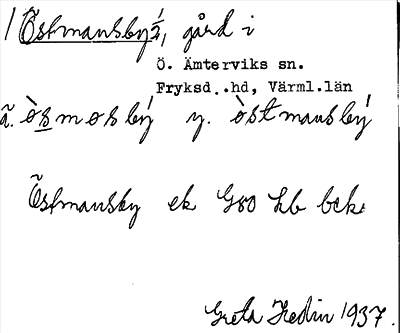 Östmansby ½, gård i
Ö. Ämterviks sn.
Fryksd..hd, Värml.län
ã. òsmosbý y. òstmansbý
Östmansby ek G80 Lb bck
Greta Hedin 1937.